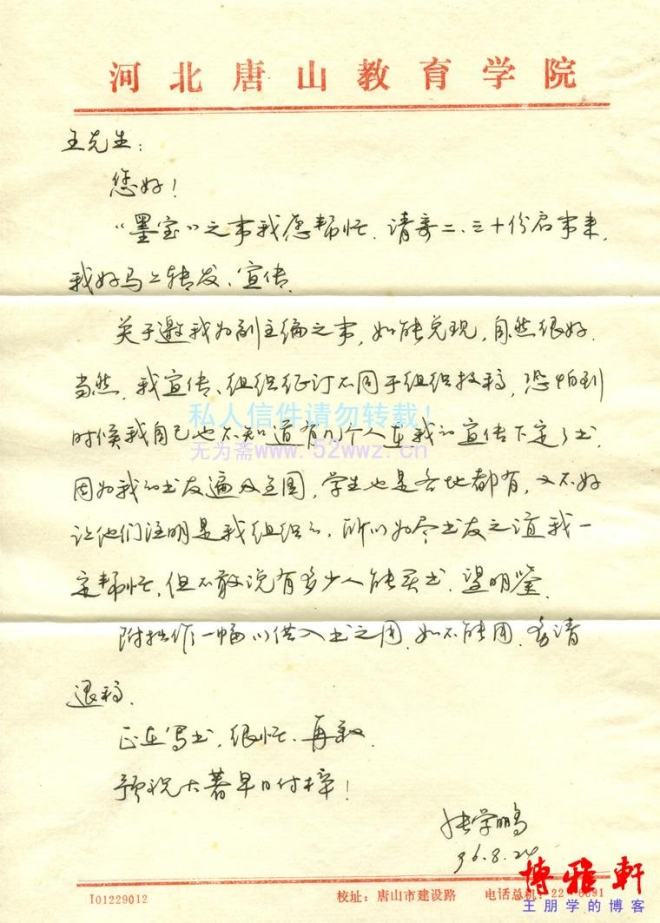 河北唐山教育学院
王先生:
您好!
“墨宝”之事我愿帮忙.请寄二、三十份启事来,
我好马上转发、宣传.
关于邀我为副主编之事,如能兑现,自然很好.
当然,我宣传、组织征订不同于组织投稿,恐怕到
私人信件请勿转载!
时候我自己也不知道有几个人在我的宣传下定了书,
无为斋www.52wwz.cn
因为我的书友遍及全国,学生也是各地都有,又不好
让他们注明是我组织的,所以为尽书友之谊我一
定帮忙,但不敢说有多少人能买书.望明鉴.
附拙作一幅以借入书之用.如不能用,务请
退稿.
正在写书,很忙.再叙.
预祝大著早日付梓!
张学鹏
96.8.24
博雅轩
王朋学的博客
I01229012
校址:唐山市建设路
电话总机:22 6691